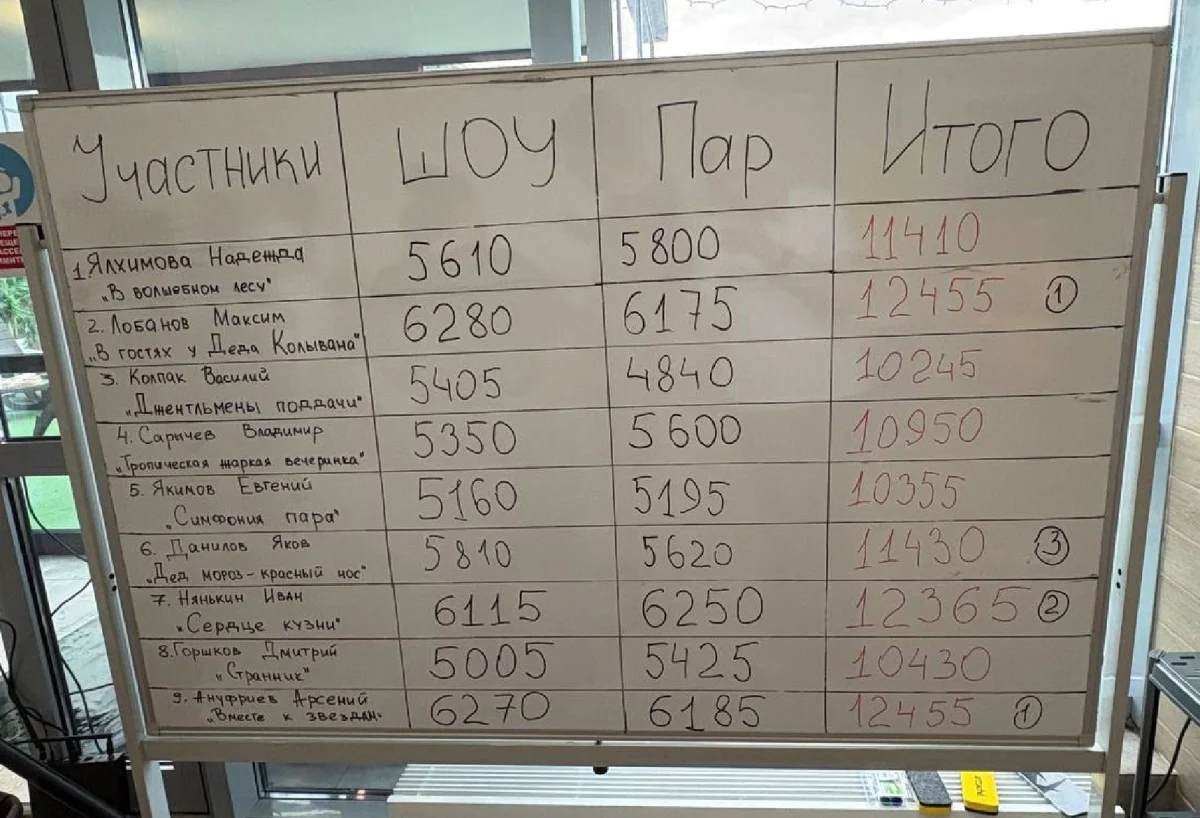 Участники ШОУ Пар Итого
1. Ялхимова Надежда 5610 5800 11410
„В волшебном лесу"
2. Лобанов Максим 6280 6175 12455 ①
„В гостях у Деда Колывана"
3. Колпак Василий 5405 4840 10245
„Джентльмены поддачи"
4. Сарычев Владимир 5350 5600 10950
„Тропическая жаркая вечеринка"
5. Якимов Евгений 5160 5195 10355
„Симфония пара"
6. Данилов Яков 5810 5620 11430 ③
„Дед мороз-красный нос"
7. Нянькин Иван 6115 6250 12365 ②
„Сердце кузни"
8. Горшков Дмитрий 5005 5425 10430
„Странник"
9. Ануфриев Арсений 6270 6185 12455 ①
„Вместе к звездам"